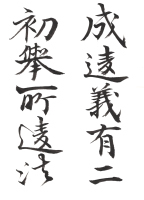 成違義有二
初舉所違法